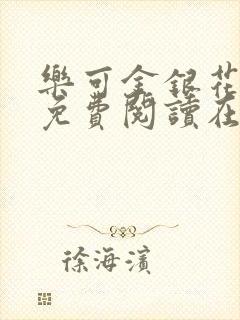 樂可金銀花
免費閱讀在
徐海濱